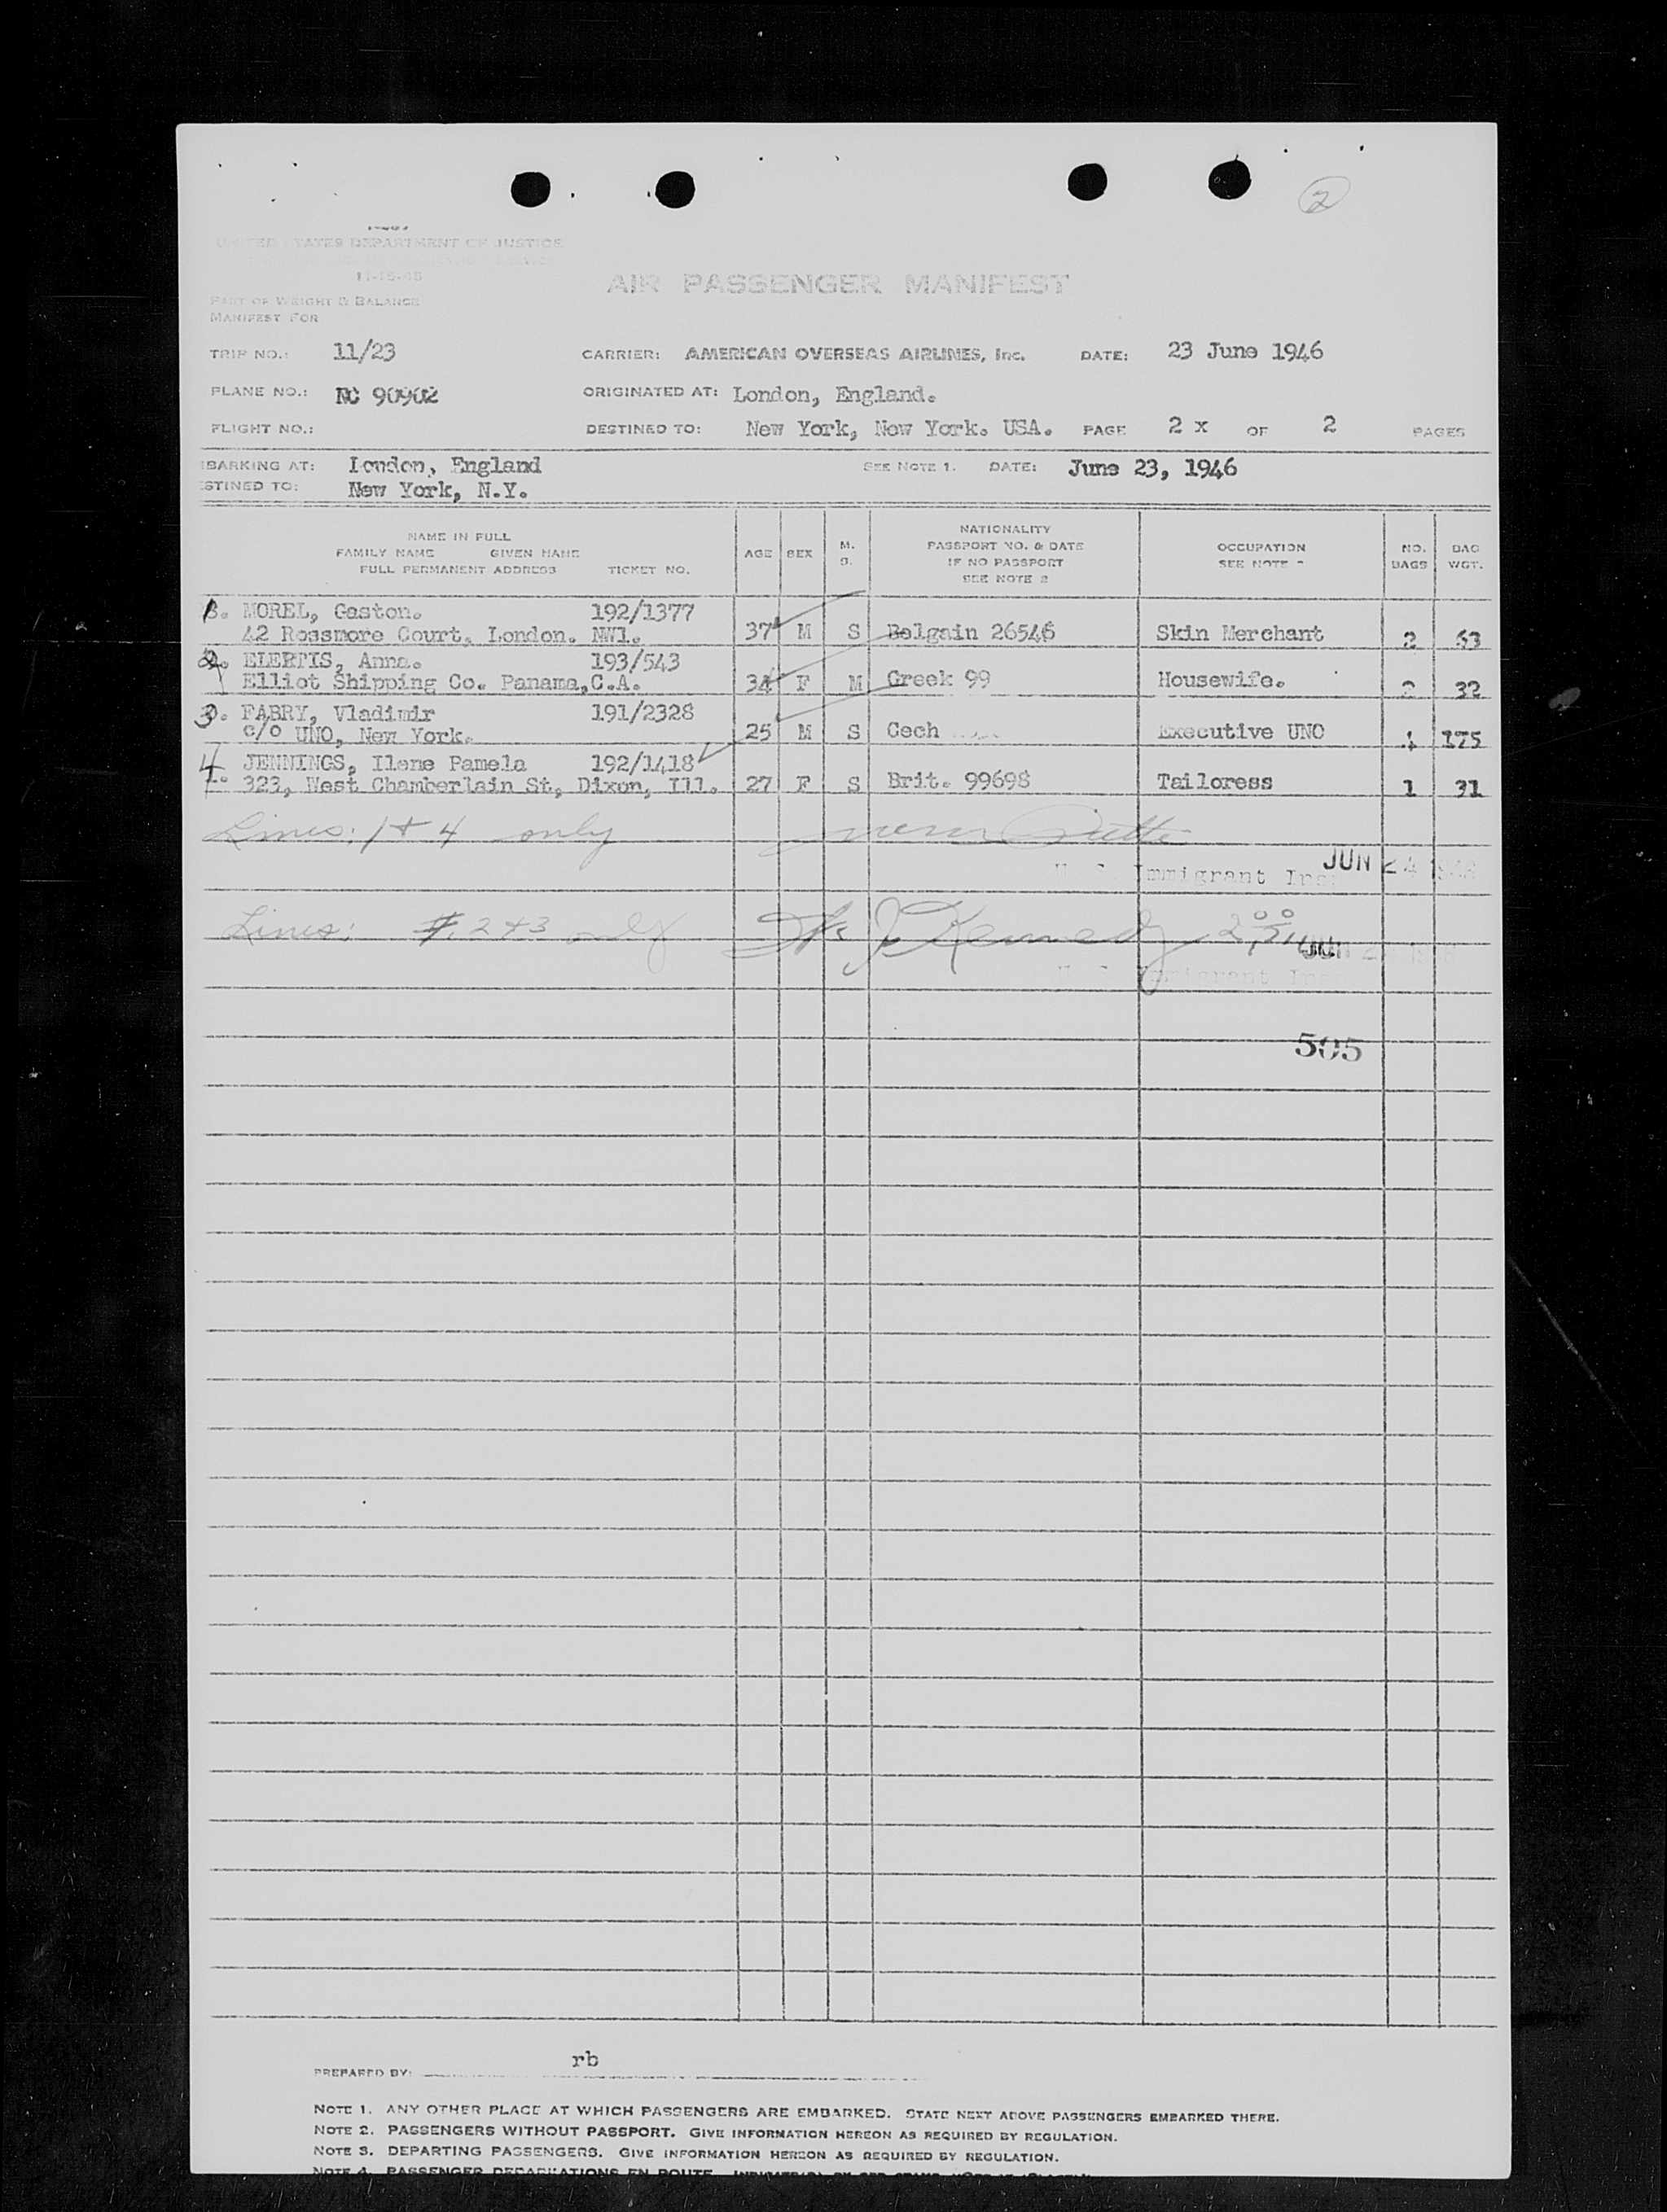 2
UNITED STATES DEPARTMENT OF JUSTICE
11-15-45
AIR PASSENGER MANIFEST
PART OF WEIGHT & BALANCE
MANIFEST FOR
TRIP NO.: 11/23 CARRIER: AMERICAN OVERSEAS AIRLINES, Inc. DATE: 23 June 1946
PLANE NO.: NC 90902 ORIGINATED AT: London, England.
FLIGHT NO.: DESTINED TO: New York, New York. USA. PAGE 2 x OF 2 PAGES
BARKING AT: London, England SEE NOTE 1. DATE: June 23, 1946
STINED TO: New York, N.Y.
NAME IN FULL
FAMILY NAME GIVEN NAME
FULL PERMANENT ADDRESS TICKET NO.
AGE
SEX
M.
S.
NATIONALITY
PASSPORT NO. & DATE
IF NO PASSPORT
SEE NOTE 2
OCCUPATION
SEE NOTE
NO.
BAGS
BAG
WGT.
1. MOREL, Gaston. 192/1377
42 Rossmore Court, London. NW1. 37 M S Belgain 26546 Skin Merchant 2 63
2. ELERTIS, Anna. 193/543
Elliot Shipping Co. Panama,C.A. 34 F M Greek 99 Housewife. 2 32
3. FABRY, Vladimir 191/2328
c/o UNO, New York. 25 M S Cech Executive UNO 4 175
4. JENNINGS, Ilene Pamela 192/1418
323, West Chamberlain St, Dixon, Ill. 27 F S Brit. 99698 Tailoress 1 31
Lines: 1 + 4 only
JUN 24
Immigrant Ins
Lines: 2 + 3 only Kennedy
JUN
Immigrant Ins
505
PREPARED BY: rb
NOTE 1. ANY OTHER PLACE AT WHICH PASSENGERS ARE EMBARKED. STATE NEXT ABOVE PASSENGERS EMBARKED THERE.
NOTE 2. PASSENGERS WITHOUT PASSPORT. GIVE INFORMATION HEREON AS REQUIRED BY REGULATION.
NOTE 3. DEPARTING PASSENGERS. GIVE INFORMATION HEREON AS REQUIRED BY REGULATION.
NOTE 4. PASSENGER EN ROUTE.